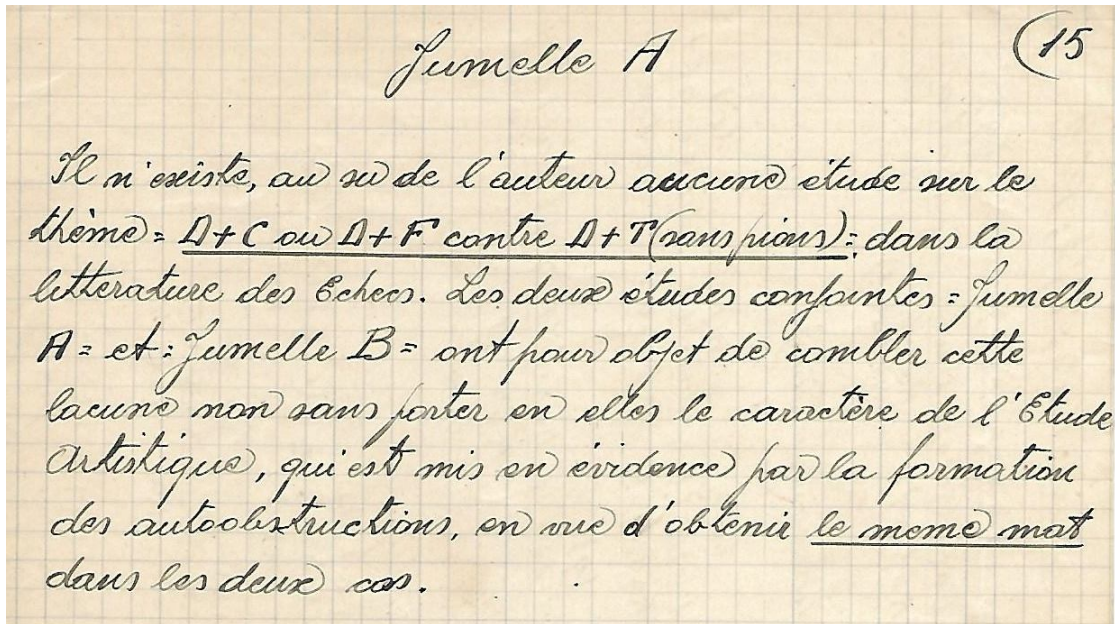 Jumelle A
(15
Il n'existe, au su de l'auteur aucune étude sur le
thème = D+C ou D+F contre D+T (sans pions) = dans la
litterature des Echecs. Les deux études conjointes = Jumelle
A = et = Jumelle B = ont pour objet de combler cette
lacune non sans porter en elles le caractère de l'Etude
Artistique, qui est mis en évidence par la formation
des autoobstructions, en vue d'obtenir le meme mat
dans les deux cas.